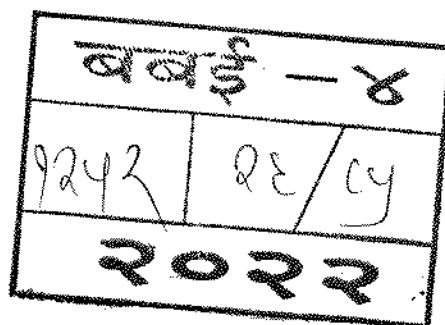 बबई - ४
१२५२ २६/८५
२०२२